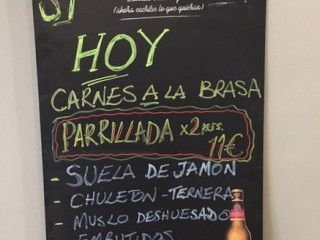 (ahora escribe lo que quieras)
HOY
CARNES A LA BRASA
PARRILLADA x2 PERS.
11€
- SUELA DE JAMÓN
- CHULETON - TERNERA
- MUSLO DESHUESADO
- EMBUTIDOS